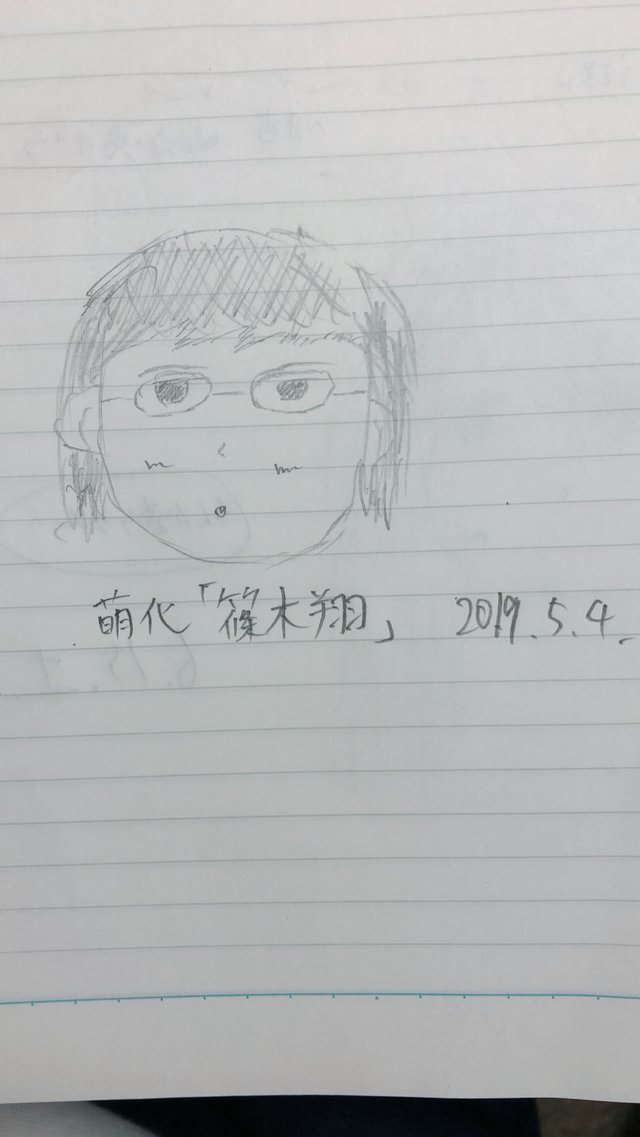 萌化「篠木翔」 2019.5.4.